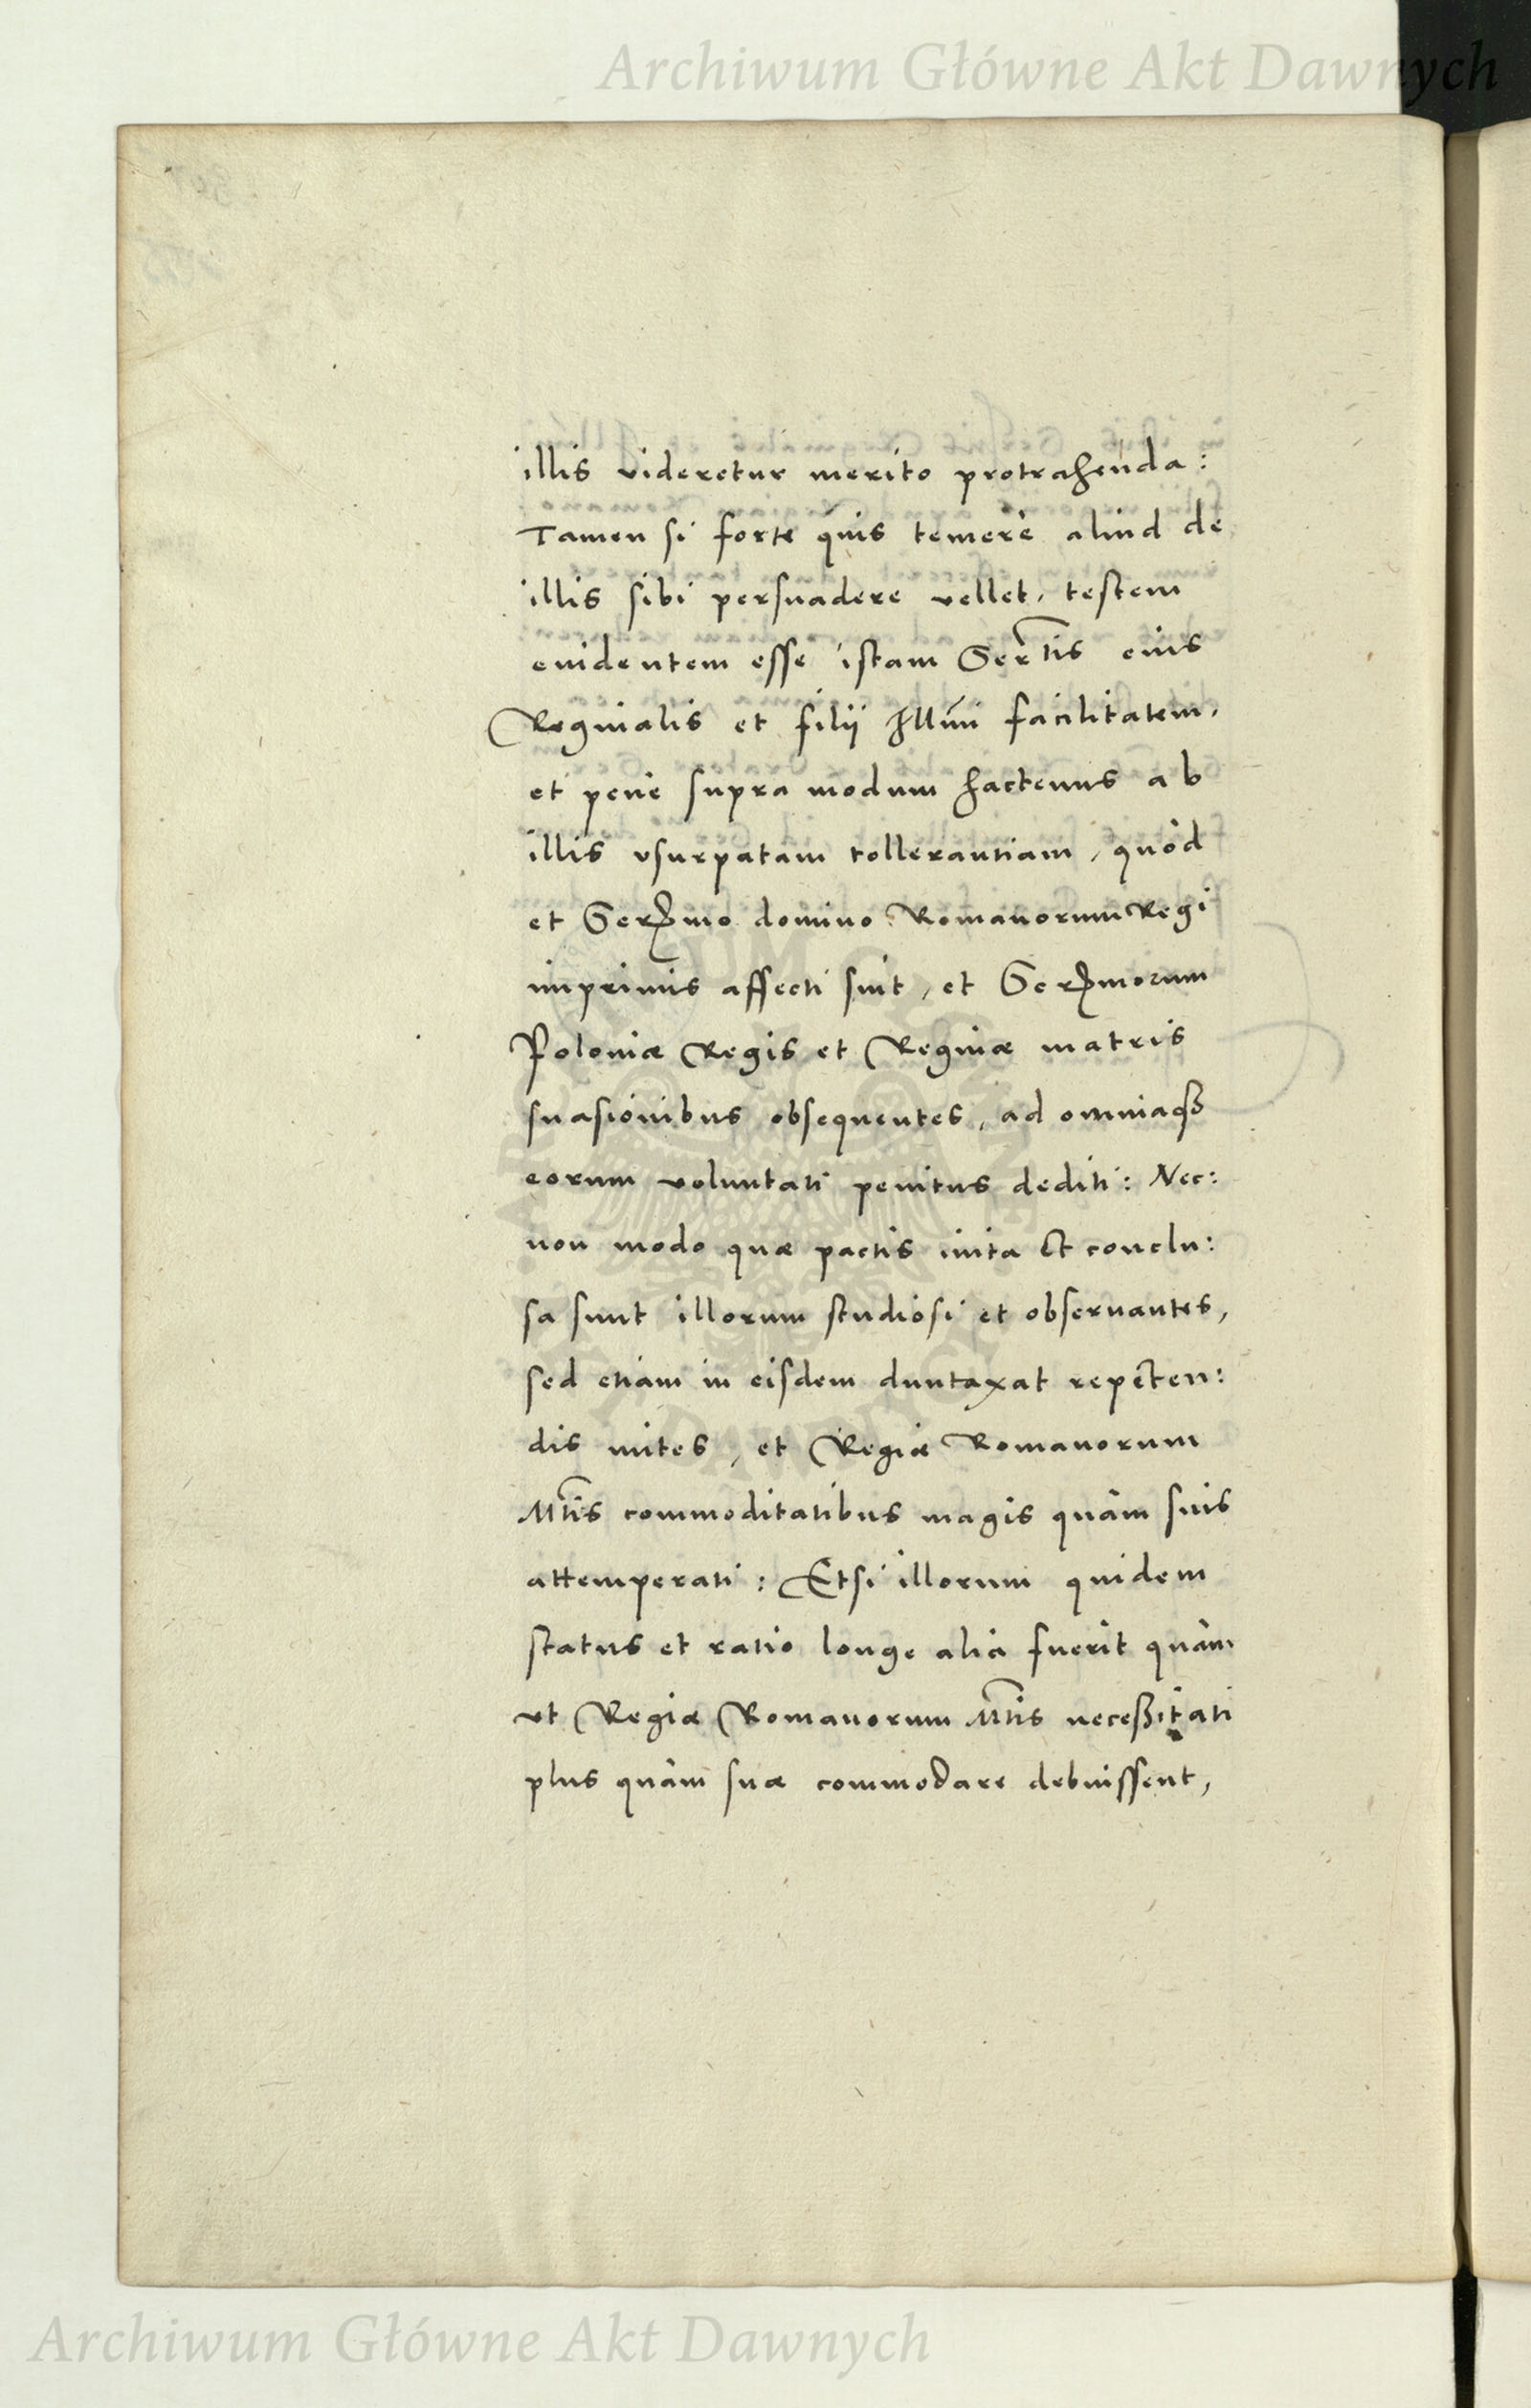 Archiwum Główne Akt Dawnych
illis videretur merito protrahenda:
Tamen si forte quis temerè aliud de
illis sibi persuadere vellet, testem
euidentem esse istam Serᵗⁱˢ eius
Reginalis et filii Illmi facilitatem,
et penè supra modum hactenus ab
illis vsurpatam tollerantiam, quòd
et Sermo domino Romanorum Regi
imprimis affecti sint, et Sermorum
Poloniæ Regis et Reginæ matris
suasionibus obsequentes, ad omniaqȝ
eorum voluntati penitus dediti: Nec:
non modo quæ pactis inita et conclu:
sa sunt illorum studiosi et obseruantes,
sed etiam in eisdem duntaxat repeten:
dis mites, et Regiæ Romanorum
Mtis commoditatibus magis quàm suis
attemperati: Etsi illorum quidem
status et ratio longe alia fuerit quàm
vt Regiæ Romanorum Mtis neceßitati
plus quàm suæ commodare debuissent,
Archiwum Główne Akt Dawnych